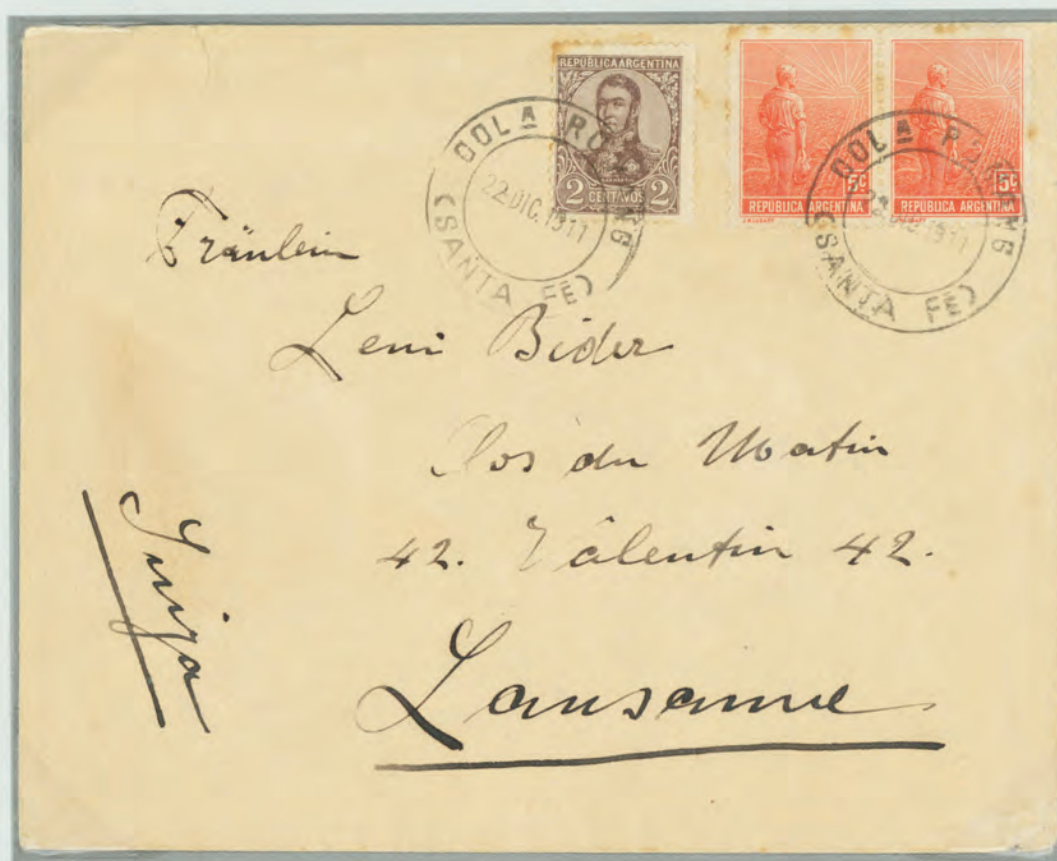 REPÚBLICA ARGENTINA
2 CENTAVOS 2
5c
REPÚBLICA ARGENTINA
5c
REPÚBLICA ARGENTINA
COLA
22 DIC. 1911
(SANTA FE)
COLA
DIC 1911
(SANTA FE)
Fräulein
Leni Bider
Clos du Matin
42. Valentin 42.
Lausanne
Suiza